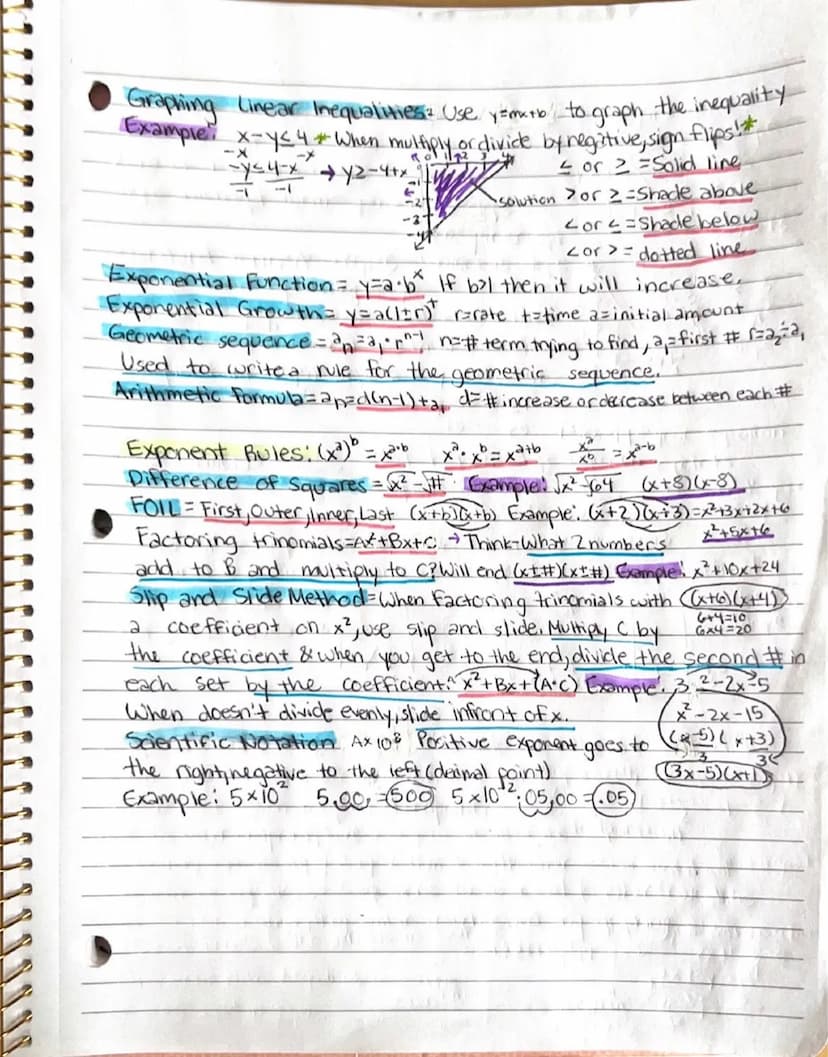 Graphing Linear Inequalities: Use y=mx+b to graph the inequality
Example: x-y≤4 * When multiply or divide by negative, sign flips!*
-x -x ≤ or ≥ = Solid line
-y≤4-x → y≥-4+x solution > or ≥ = Shade above
-1 -1
-1 -2 -3 -4
0 1 2 3
< or ≤ = Shade below
< or > = dotted line
Exponential Function = y=a·bˣ If b>1 then it will increase.
Exponential Growth = y=a(1±r)ᵗ r=rate t=time a=initial amount
Geometric sequence = aₙ=a₁·rⁿ⁻¹ n=# term trying to find, a₁=first # r=a₂÷a₁
Used to write a rule for the geometric sequence.
Arithmetic formula = aₙ=d(n-1)+a₁ d=# increase or decrease between each #
Exponent Rules: (xᵃ)ᵇ = xᵃ·ᵇ xᵃ·xᵇ=xᵃ⁺ᵇ xᵃ/xᵇ = xᵃ⁻ᵇ
Difference of Squares = √x² - √# Example: √x² -√64 (x+8)(x-8)
FOIL = First, Outer, Inner, Last (x+b)(x+b) Example: (x+2)(x+3)=x²+3x+2x+6
x²+5x+6
Factoring trinomials=Ax²+Bx+C → Think-What 2 numbers
add to B and multiply to C? Will end (x±#)(x±#) Example: x²+10x+24
Slip and Slide Method = When factoring trinomials with (x+6)(x+4)
6+4=10
6x4=20
a coefficient on x², use slip and slide. Multiply C by
the coefficient & when you get to the end, divide the second # in
each set by the coefficient. x²+Bx+(A·C) Example: 3x²-2x-5
When doesn't divide evenly, slide infront of x. x²-2x-15
Scientific Notation Ax10ᴮ Positive exponent goes to (x-5)(x+3)
3 3
the right, negative to the left (decimal point) (3x-5)(x+1)
Example: 5×10² 5.00. =500 5×10⁻² .05,00 =.05